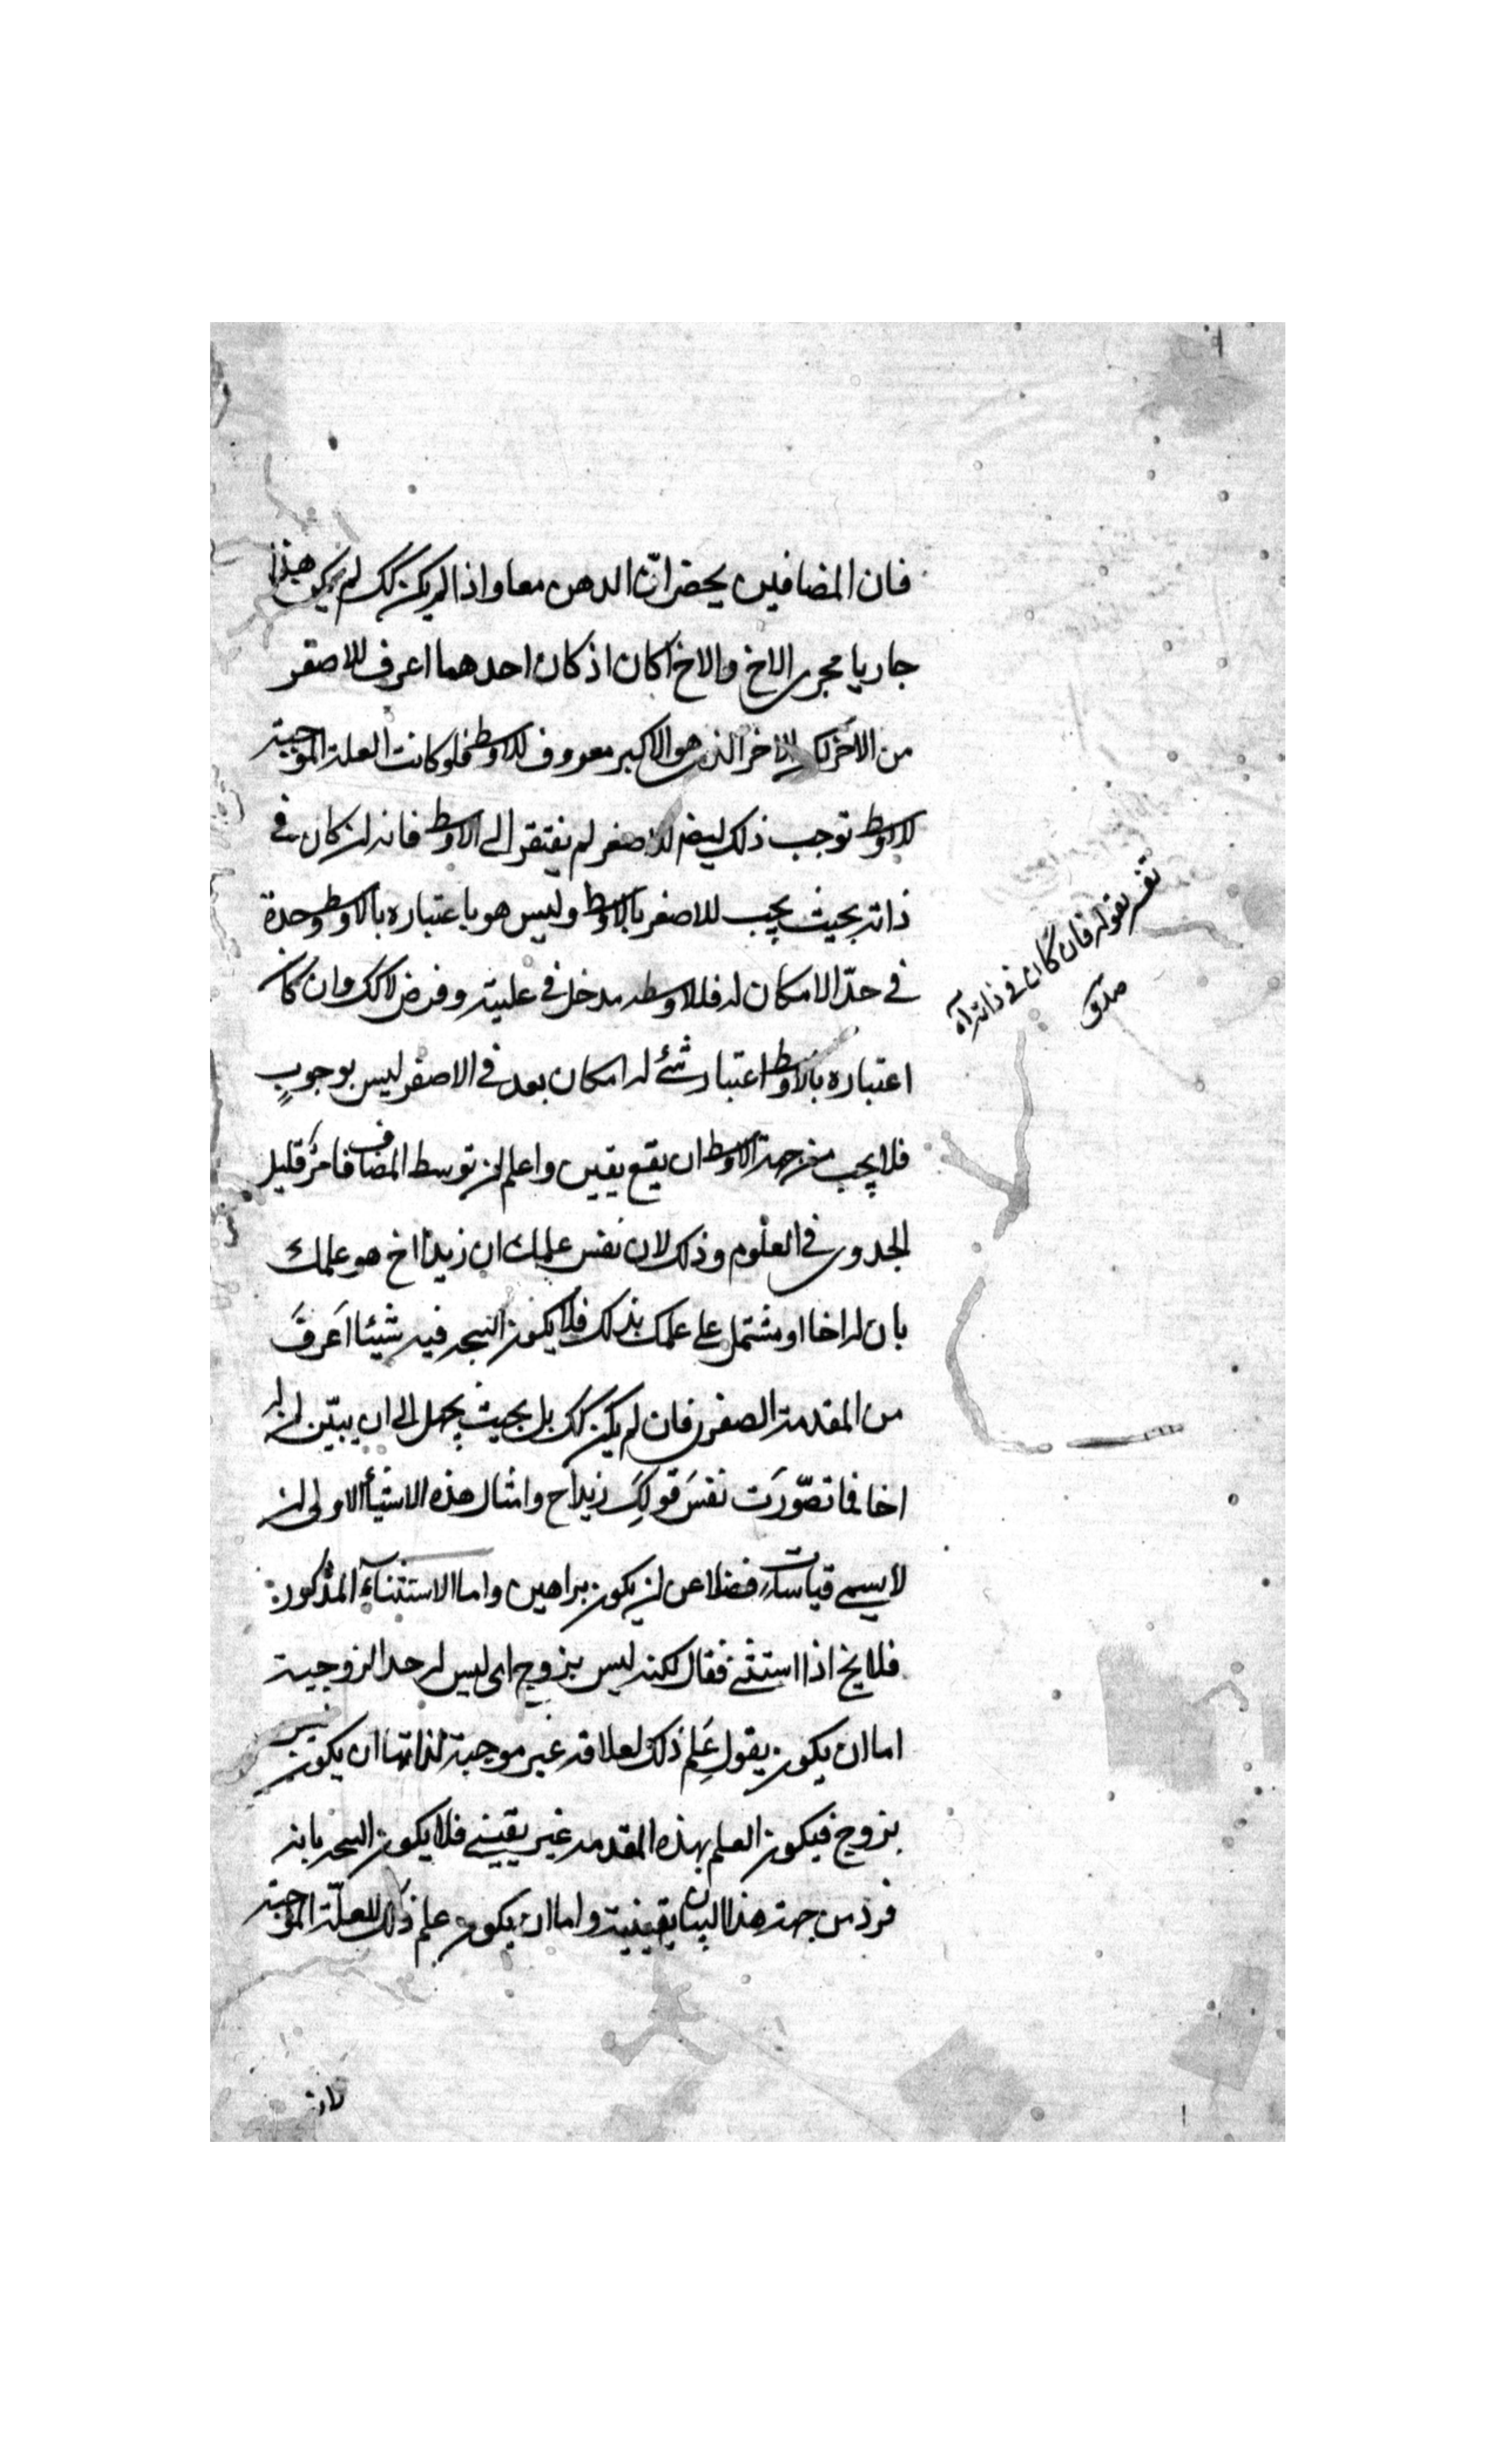 فان المضافين يحضران الذهن معا واذا لم يكن كك لم يكن هذا
جاريا مجرى الاخ والاخ اكان اذ كان احدهما اعرف للاصغر
من الاخر لكن الاخر الذى هو الاكبر معروف للاوسط فلو كانت العلة الموجبة
للاوسط توجب ذلك ايضا للاصغر لم يفتقر الى الاوسط فانه ان كان فى
ذاته بحيث يجب للاصغر بالاوسط وليس هو باعتباره بالاوسط وحدة
فى حدّ الامكان له فللاوسط مدخل فى علية وفرض لا كك وان كان
اعتباره بالاوسط اعتبار شئ له امكان بعد فى الاصغر ليس بوجوبٍ
فلا يجب من جهة الاوسط ان يقع يقين واعلم ان توسط المضاف فامرٌ قليل
الجدوى فى العلوم وذلك لان نفس علمك ان زيدا اخ هو علمك
بان له اخا او مشتمل على علمك بذلك فلا يكون النتيجه فيه شيئا اَعرفَ
من المقدمة الصغرى فان لم يكن كك بل بحيث يجهل الى ان يبيّن ان له
اخا فما تصّورَت نفسَ قولِكَ زيد اخ وامثال هذه الاشياء الاولى ان
لا يسمى قياسات فضلا عن ان يكون براهين واما الاستثناء المذكور
فلا يخ اذا استثنى فقال لكنه ليس بزوج اى ليس له حد الزوجية
اما ان يكون يقول عَلِم ذلك لعلاقه غير موجبة لذاتها ان يكون ليس
بزوج فيكون العلم بهذه المقدمه غير يقينى فلا يكون النتيجه بانه
فرد من جهة هذا البيان يقينية واما ان يكون علم ذلك للعلّة الموجبة
تفسير لقوله فان كان فى ذاته آه